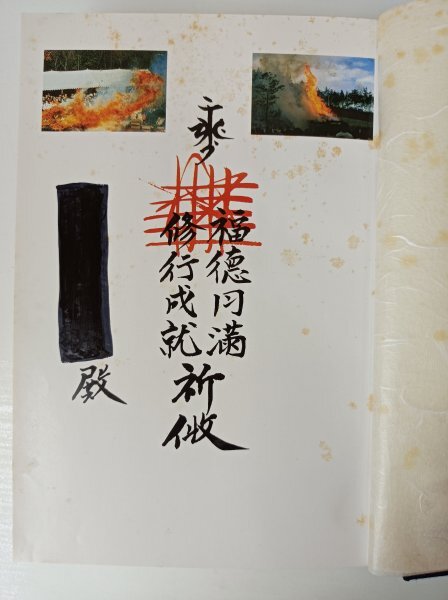 福徳円満
修行成就
祈攸
殿